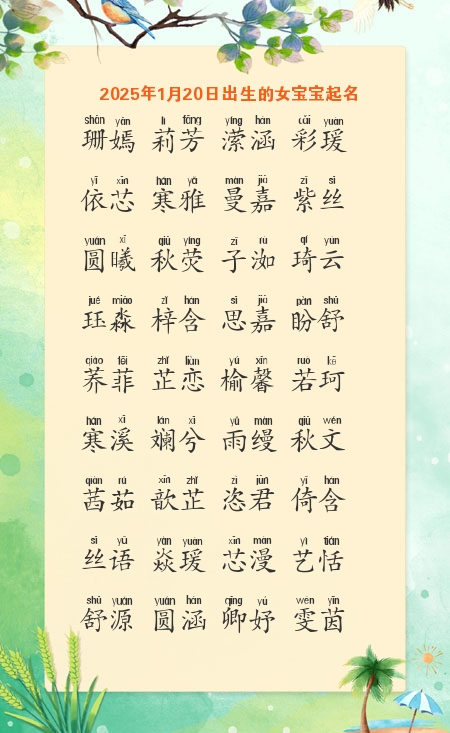 2025年1月20日出生的女宝宝起名
shān yān lì fāng yíng hán cǎi yuàn
珊嫣 莉芳 潆涵 彩瑗
yī xīn hán yǎ màn jiā zǐ sī
依芯 寒雅 曼嘉 紫丝
yuán xī qiū yíng zǐ rù qí yún
圆曦 秋荧 子洳 琦云
jué miǎo zǐ hán sī jiā pàn shū
珏淼 梓含 思嘉 盼舒
qiáo fēi zhǐ liàn yú xīn ruò kē
荞菲 芷恋 榆馨 若珂
hán xī lán xī yǔ màn qiū wén
寒溪 斓兮 雨缦 秋文
qiàn rú xīn zhǐ zì jūn yǐ hán
茜茹 歆芷 恣君 倚含
sī yǔ yàn yuàn xīn màn yì tián
丝语 焱瑗 芯漫 艺恬
shū yuán yuán hán qīng yú wén yīn
舒源 圆涵 卿妤 雯茵